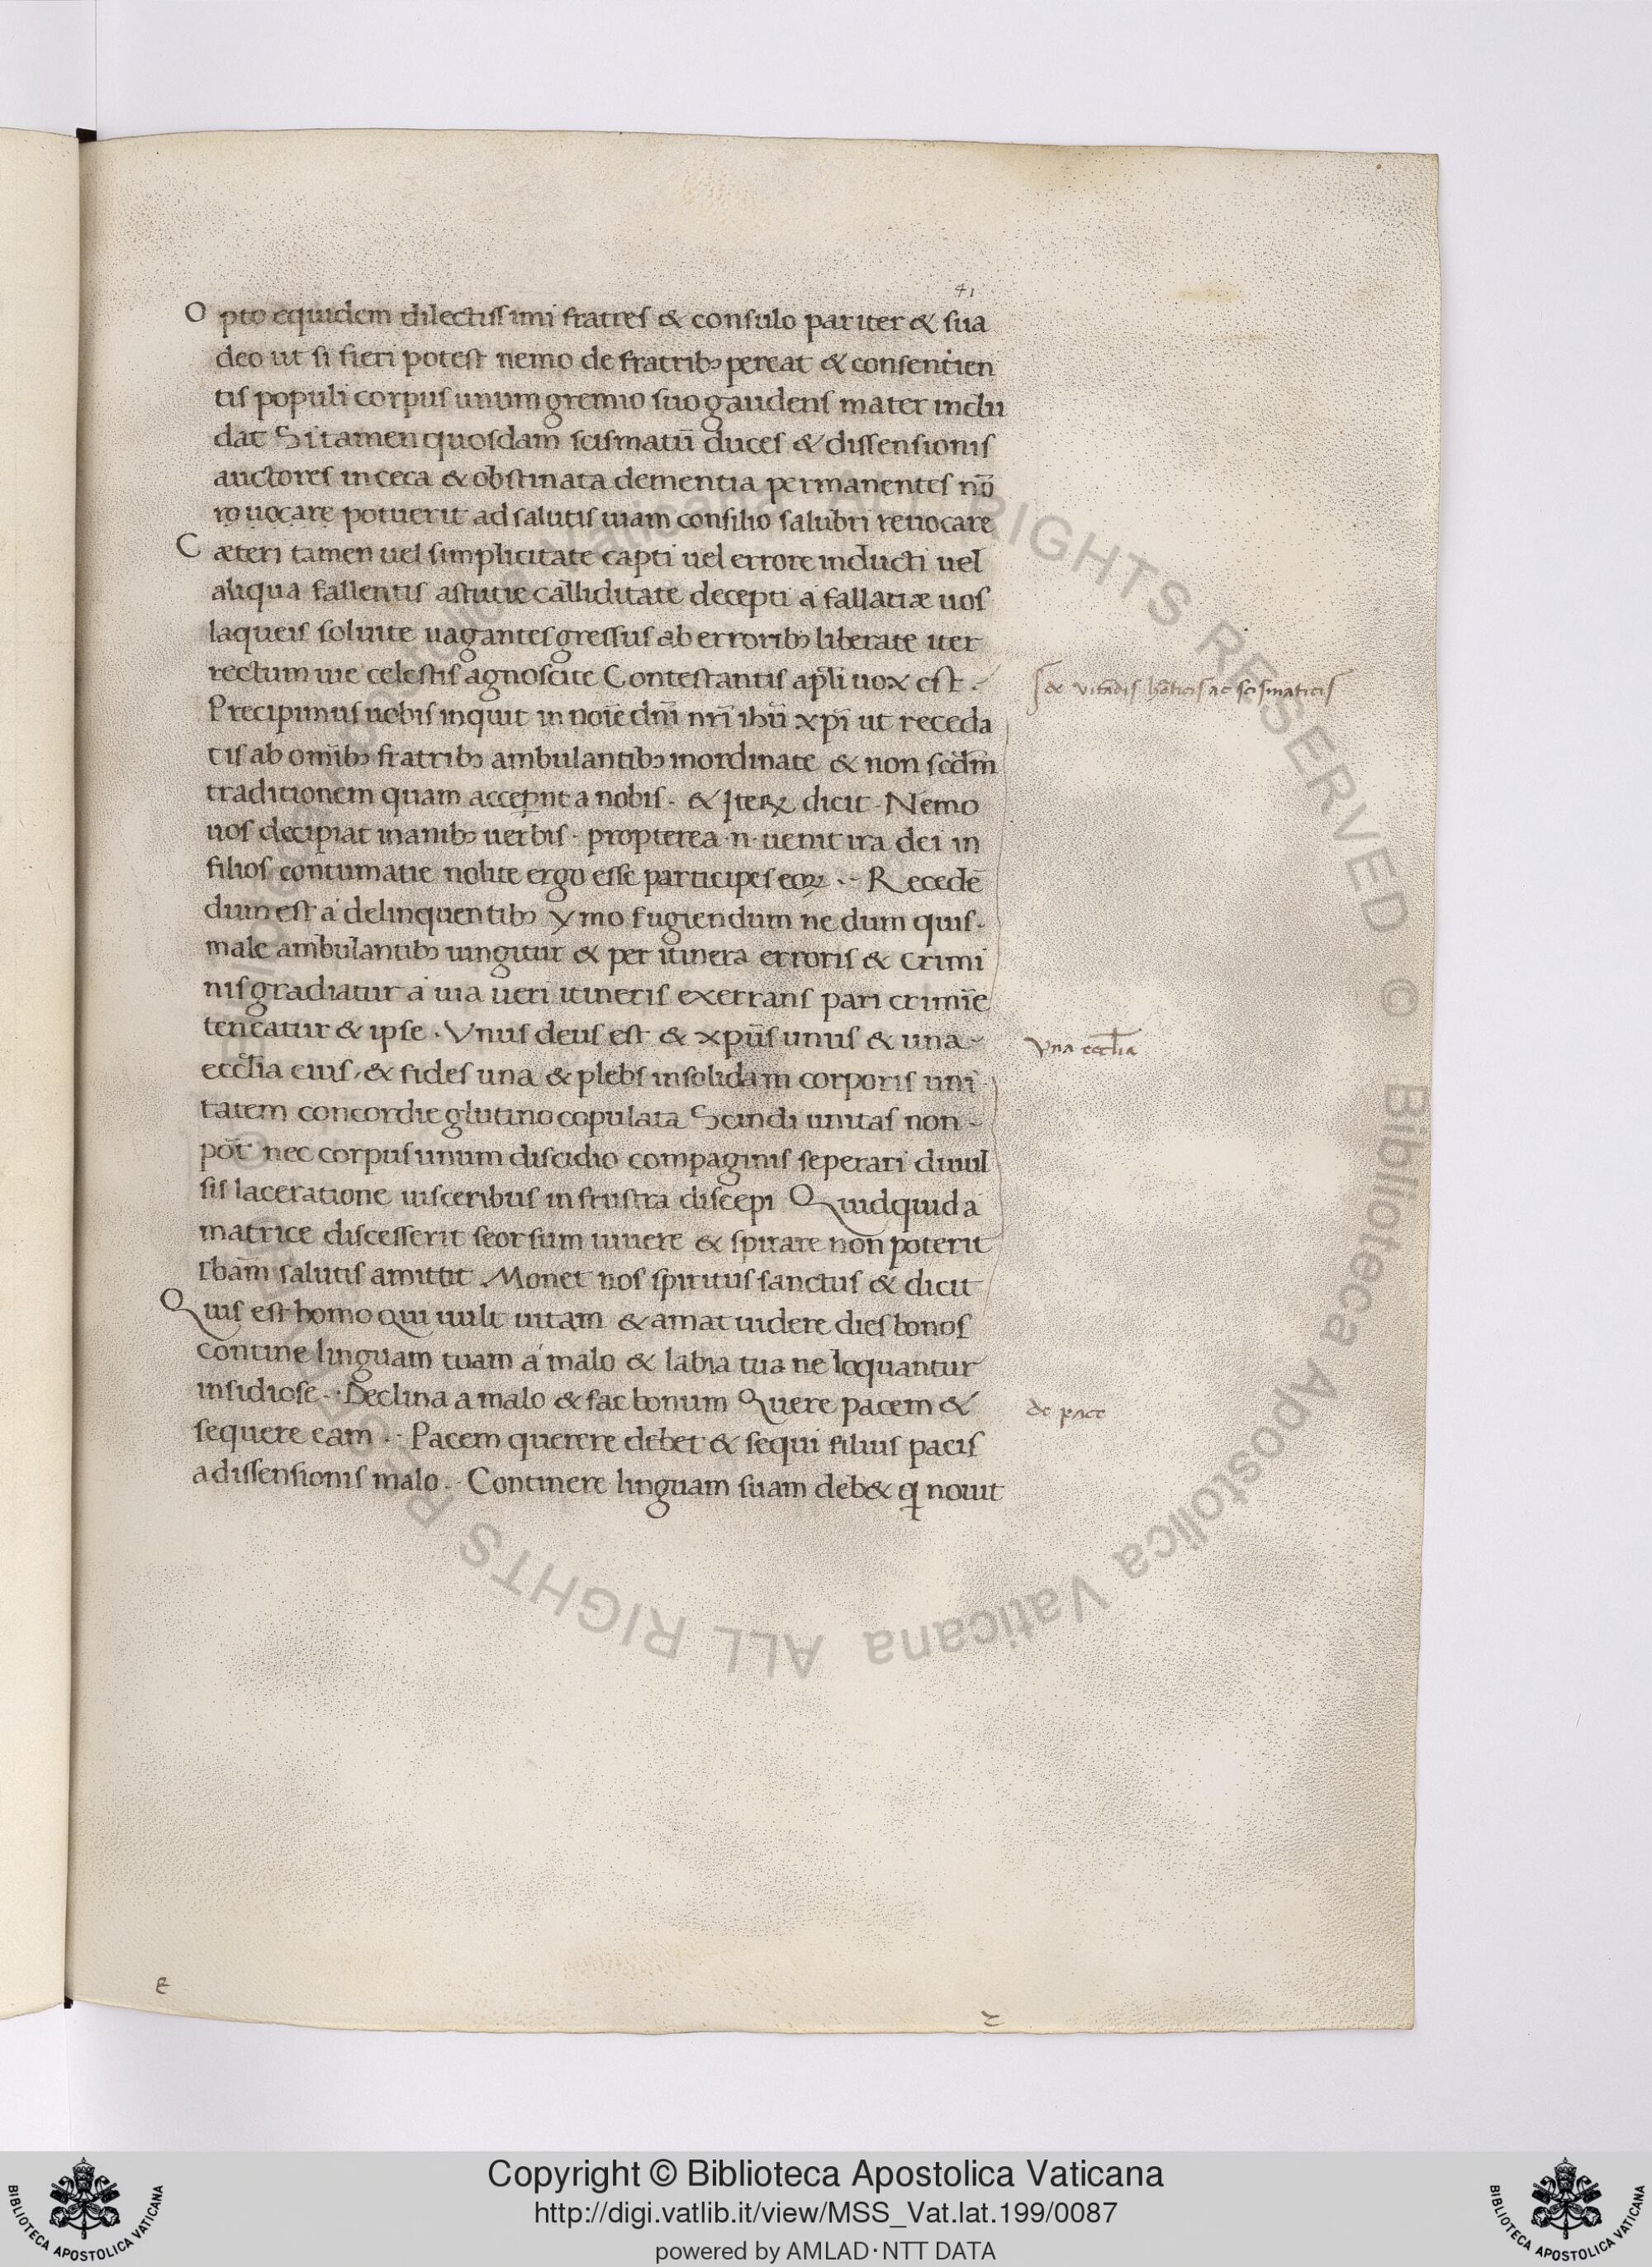 41
Opto equidem dilectissimi fratres & consulo pariter & sua
deo ut si fieri potest nemo de fratribꝫ pereat & consentien
tis populi corpus unum gremio suo gaudens mater inclu
dat Si tamen quosdam scismatū duces & dissensionis
auctores in ceca & obstinata dementia permanentes nō
potuerit ad salutis uiam consilio salubri reuocare
Cæteri tamen uel simplicitate capti uel errore inducti uel
aliqua fallentis astutie calliditate decepti a fallatiæ uos
laqueis soluite uagantes gressus ab erroribꝫ liberate iter
rectum uie celestis agnoscite Contestantis apl̄i uox est.
Precipimus uobis inquit in noīe dnī nrī ihū xpī ut receda
tis ab omībꝫ fratribꝫ ambulantibꝫ inordinate & non scdm̄
traditionem quam acceꝑnt a nobis. & Iteꝝ dicit. Nemo
uos decipiat inanibꝫ uerbis. propterea .n. uenit ira dei in
filios contumatie nolite ergo esse participes eoꝝ. Recedē
dum est a delinquentibꝫ ymo fugiendum ne dum quis
male ambulantibꝫ iungitur & per itinera erroris & crimi
nis graditur a uia ueri itineris exerrans pari crimīe
teneatur & ipse. Vnus deus est & xpūs unus & una
eccl̄ia eius, & fides una & plebs insolidam corporis uni
tatem concordie glutino copulata Scindi unitas non
pōt nec corpus unum discidio compaginis seperari diuul
sis laceratione uisceribus in frustra discepi Quidquid a
matrice discesserit seorsum uiuere & spirare non poterit
sbām salutis amittit. Monet nos spiritus sanctus & dicit
Quis est homo qui uult uitam & amat uidere dies bonos
contine linguam tuam a malo & labia tua ne loquantur
insidiose. Declina a malo & fac bonum Quere pacem &
sequere eam. Pacem querere debet & sequi filius pacis
a dissensionis malo. Continere linguam suam deb& q̇ nouit
de uitādis hēticis ac scismaticis
Vna eccl̄ia
de pace
Copyright © Biblioteca Apostolica Vaticana
http://digi.vatlib.it/view/MSS_Vat.lat.199/0087
powered by AMLAD·NTT DATA
BIBLIOTECA APOSTOLICA VATICANA
BIBLIOTECA APOSTOLICA VATICANA
© Biblioteca Apostolica Vaticana ALL RIGHTS RESERVED